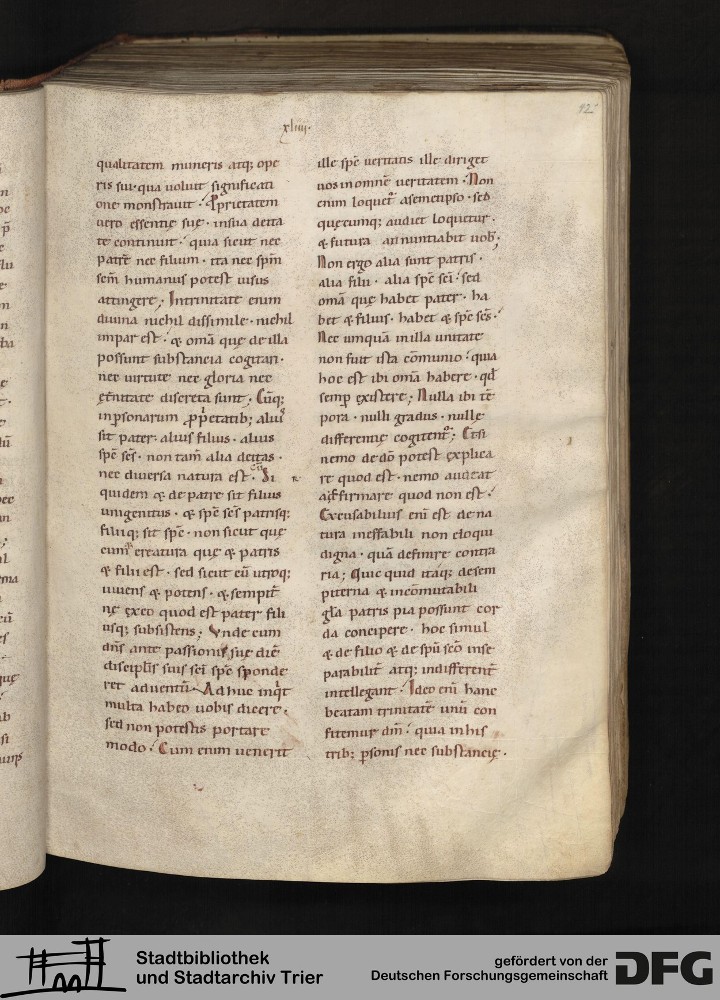 xliiii·
42
qualitatem muneris atq; ope
ris sui·qua voluit significati
one monstravit· Pprietatem
uero essentię suę· insua deita
te continuit· quia sicut nec
patrē nec filium· ita nec spm
scm humanus potest uisus
attingere; Intrinitate enim
diuina nichil dissimile· nichil
impar est· & oma que de illa
possunt substancia cogitari·
nec uirtute nec gloria nec
ęt̄nitate discreta sunt; Cūq;
inpsonarum pprietatib; aliuˢ
sit pater· alius filius· alius
spe scs· non tam alia deitas·
nec diuersa natura est· Si
quidem & de patre sit filius
unigenitus· & spe scs patrisq;
filiiq; sit spe· non sicut quę
cum creatura quę & patris
& filii est· sed sicut cū utroq;
uiuens & potens· & sempit̄
nę exeo quod est pater fili
usq; subsistens; Vnde cum
dns ante passionis suę diē
discipłis suis sci spe sponde
ret aduentū· Adhuc inqͥt
multa habeo uobis dicere·
sed non potestis portare
modo· Cum enim uenerit
ille spe ueritatis ille diriget
uos inomnē ueritatem· Non
enim loquet' asemetipso· sed
quęcumq; audiet loquetur·
& futura annuntiabit uob;
Non ergo alia sunt patris·
alia filii· alia spe sci· sed
oma quę habet pater· ha
bet & filius· habet & spe scs·
Nec umquā inilla unitate
non fuit ista cōmunio· quia
hoc est ibi oma habere· qd
semp existere; Nulla ibi tē
pora· nulli gradus· nullę
differentię cogitent'; Etsi
nemo dedō potest explica
re quod est· nemo audeat
affirmare quod non est·
Excusabilius eni est dena
tura ineffabili non eloqui
digna· quā definire contra
ria; Quic quid itaq; desem
piterna & incōmutabili
gła patris pia possunt cor
da concipere· hoc simul
& de filio & de spū sco inse
parabilit̄ atq; indifferent̄
intellegant· Ideo eni hanc
beatam trinitatē unū con
fitemur dm· quia inhis
trib; psonis nec substancię·
Stadtbibliothek
und Stadtarchiv Trier
gefördert von der
Deutschen Forschungsgemeinschaft
DFG